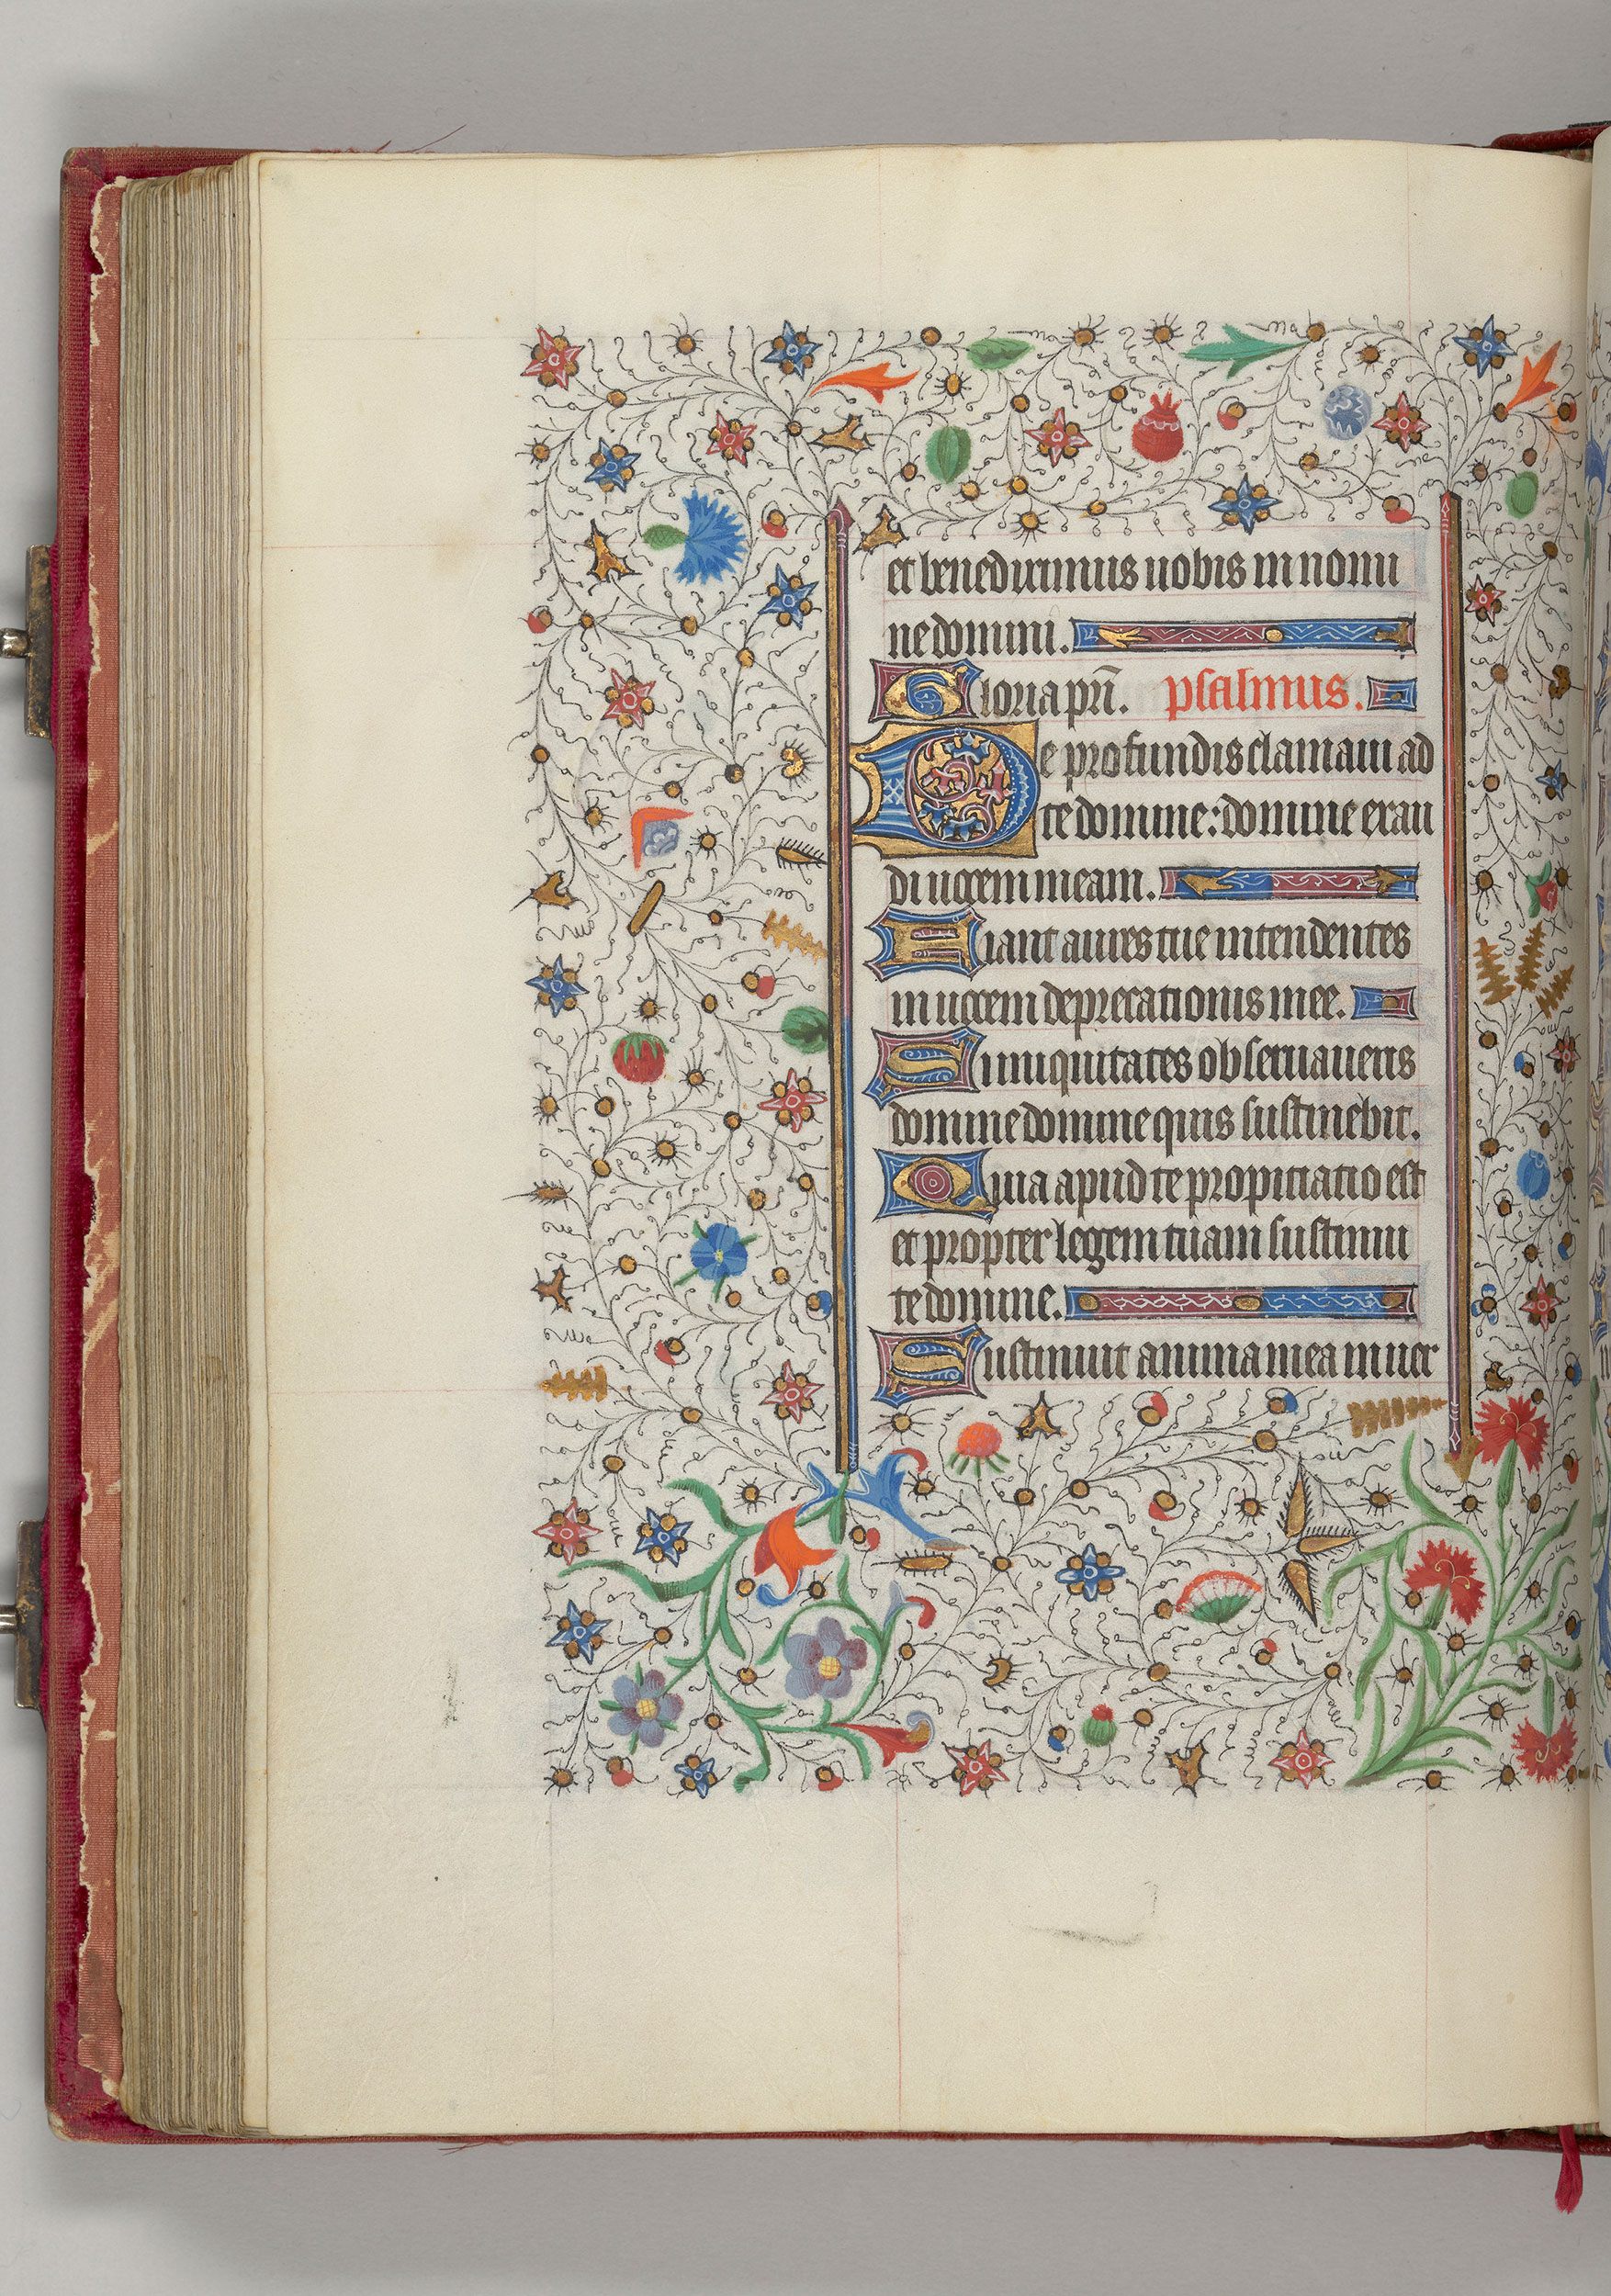 et benediximus uobis in nomi
ne domini.
Gloria pr̄i. psalmus.
De profundis clamaui ad
te domine: domine exau
di uocem meam.
Fiant aures tue intendentes
in uocem deprecationis mee.
Si iniquitates obseruaueris
domine domine quis sustinebit.
Quia apud te propiciatio est
et propter legem tuam sustinui
te domine.
Sustinuit anima mea in uer